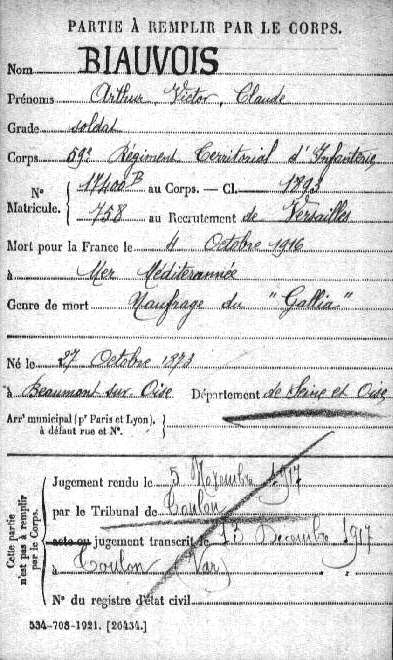 PARTIE À REMPLIR PAR LE CORPS.
Nom BIAUVOIS
Prénoms Arthur, Victor, Claude
Grade soldat
Corps 59e Régiment Territorial d'Infanterie
N° Matricule. { 17400 B au Corps. — Cl. 1893
758 au Recrutement de Versailles
Mort pour la France le 4 Octobre 1916
à Mer Méditerannée
Genre de mort Naufrage du "Gallia"
Né le 27 Octobre 1873
à Beaumont sur Oise Département de Seine et Oise
Arrt municipal (pr Paris et Lyon), à défaut rue et N°. {
Cette partie n'est pas à remplir par le Corps.
Jugement rendu le 5 Novembre 1917
par le Tribunal de Toulon
acte ou jugement transcrit le 13 Décembre 1917
à Toulon (Var)
N° du registre d'état civil
534-708-1921. [26434.]